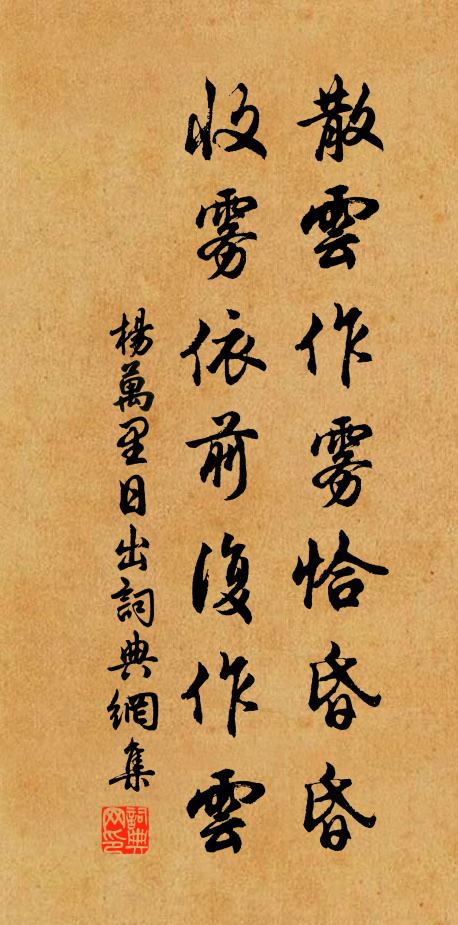 散雲作雾恰昏昏
收雾依前復作雲
楊萬里日出詞典網集
詞典网印